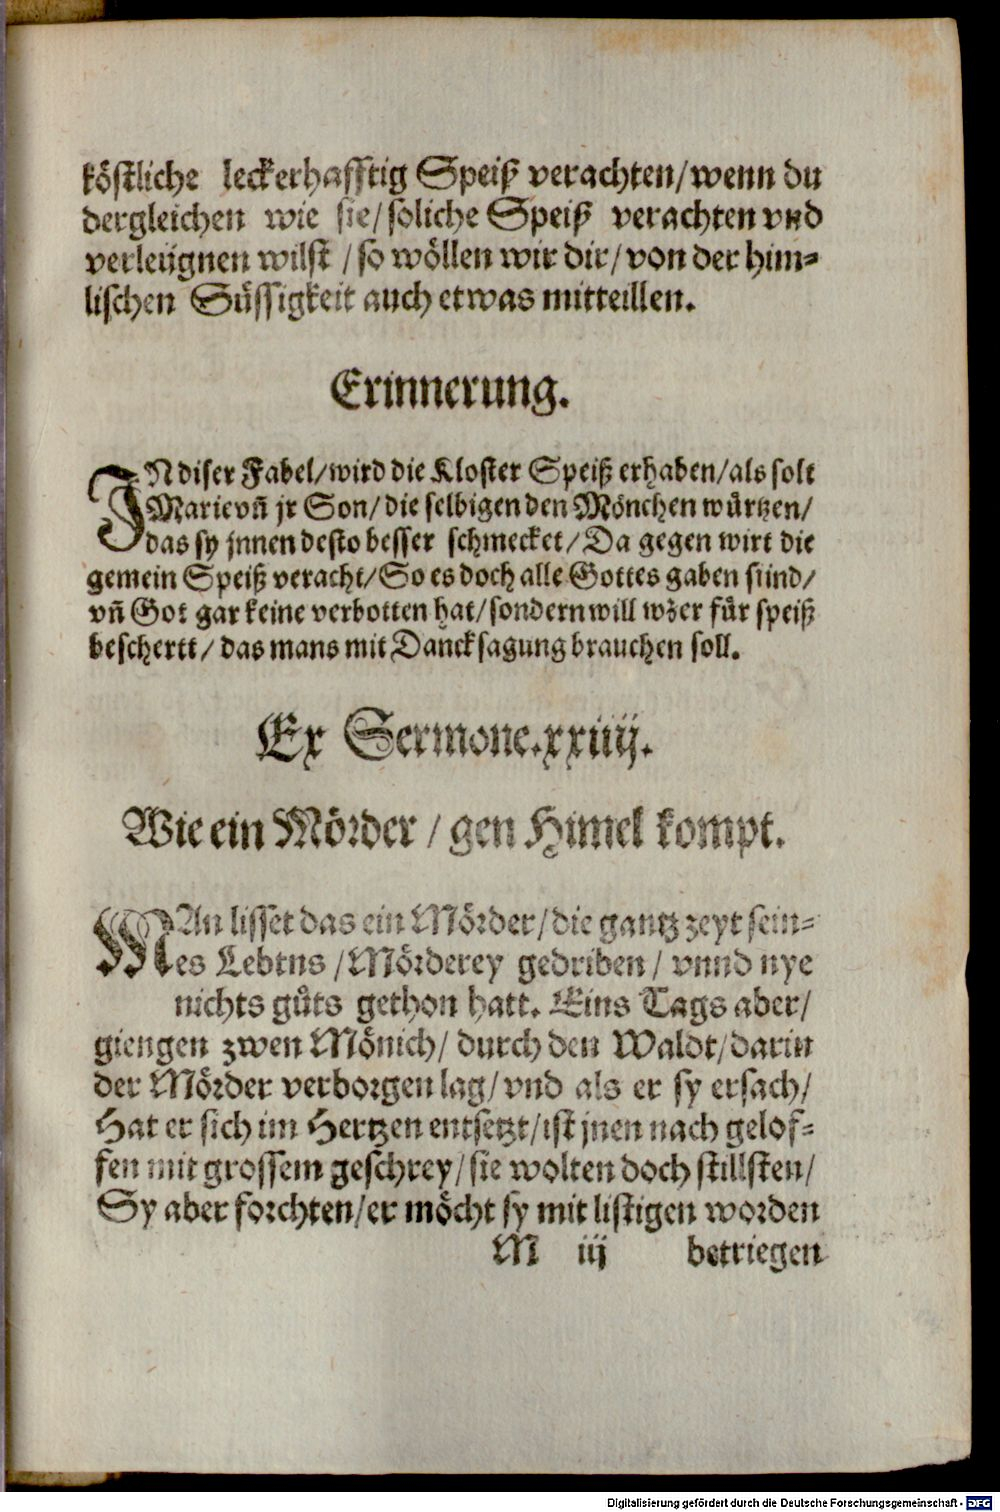 köstliche leckerhafftig Speiß verachten/wenn du
dergleichen wie sie/soliche Speiß verachten vnd
verleügnen wilst /so wöllen wir dir/von der him-
lischen Süssigkeit auch etwas mitteillen.
Erinnerung.
IN diser Fabel/wird die Kloster Speiß erhaben/als solt
Marie vñ jr Son/die selbigen den Mönchen würtzen/
das sy jnnen desto besser schmecket/Da gegen wirt die
gemein Speiß veracht/So es doch alle Gottes gaben siind/
vñ Got gar keine verbotten hat/sondern will wz er für speiß
beschertt/das mans mit Dancksagung brauchen soll.
Ex Sermone.xxiiij.
Wie ein Mörder /gen Himel kompt.
MAn lisset das ein Mörder/die gantz zeyt sein-
es Lebtns /Mörderey gedriben/ vnnd nye
nichts gůts gethon hatt. Eins Tags aber/
giengen zwen Mönich/ durch den Waldt/darin
der Mörder verborgen lag/vnd als er sy ersach/
Hat er sich im Hertzen entsetzt/ist jnen nach gelof-
fen mit grossem geschrey/sie wolten doch stillsten/
Sy aber forchten/er möcht sy mit listigen worden
M iij betriegen
Digitalisierung gefördert durch die Deutsche Forschungsgemeinschaft - DFG